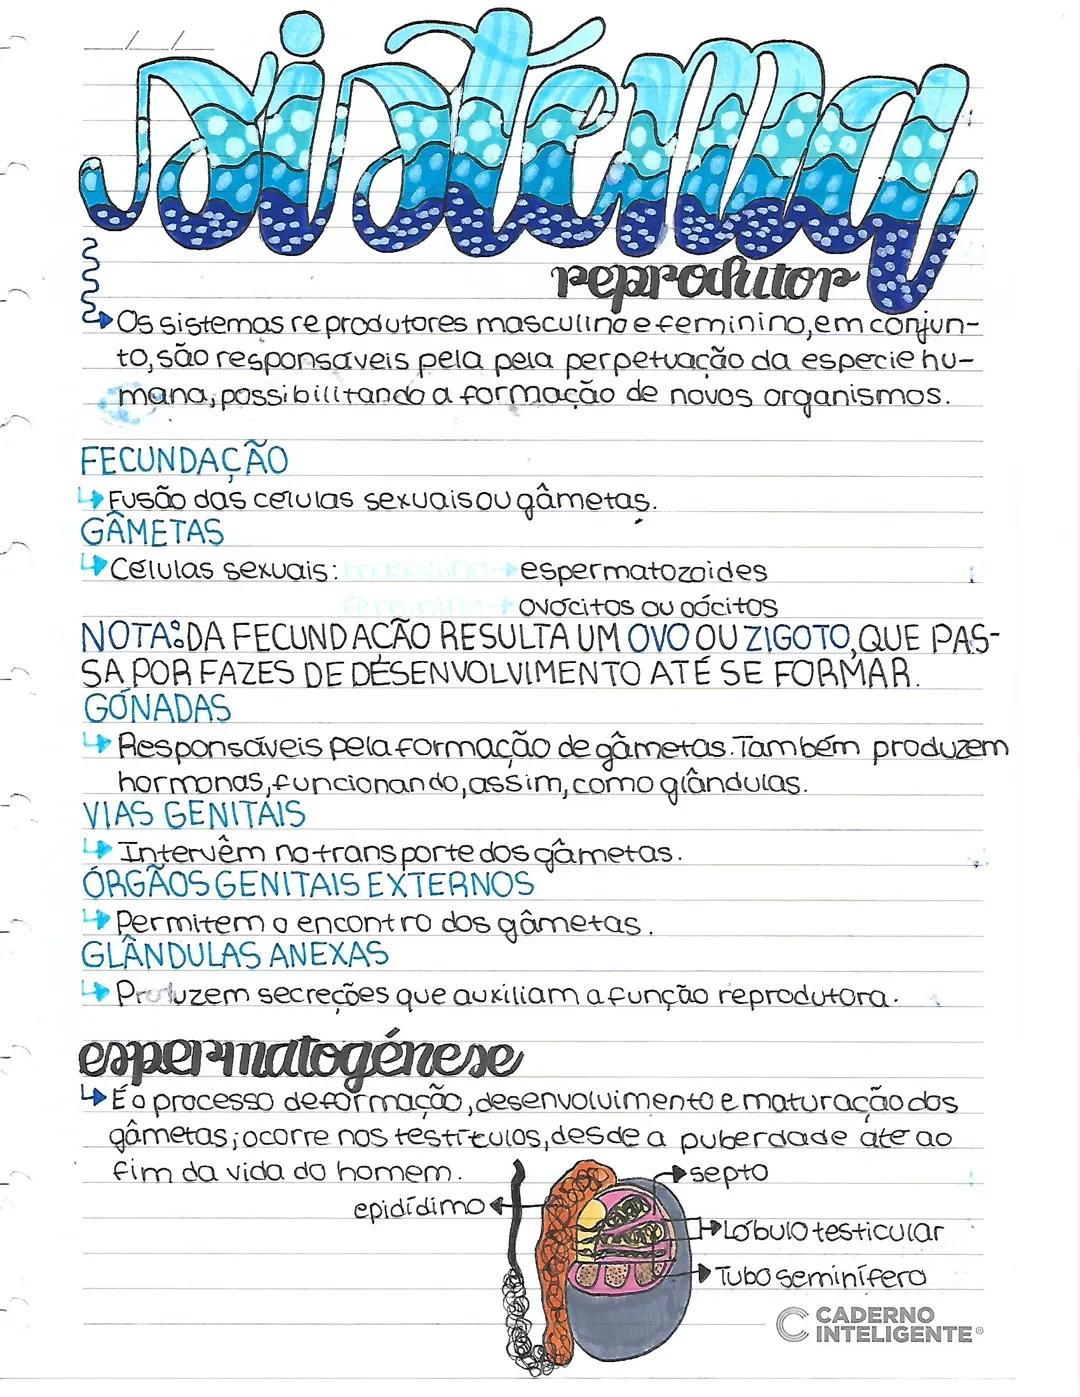 sistema
reprodutor
Os sistemas reprodutores masculino e feminino, em conjun-
to, são responsáveis pela pela perpetuação da especie hu-
mana, possibilitando a formação de novos organismos.
FECUNDAÇÃO
Fusão das células sexuais ou gâmetas.
GÂMETAS
Células sexuais: masculino → espermatozoides
feminino → ovócitos ou oócitos
NOTA: DA FECUNDAÇÃO RESULTA UM OVO OU ZIGOTO, QUE PAS-
SA POR FAZES DE DESENVOLVIMENTO ATÉ SE FORMAR.
GÓNADAS
Responsáveis pela formação de gâmetas. Também produzem
hormonas, funcionando, assim, como glândulas.
VIAS GENITAIS
Intervêm no transporte dos gâmetas.
ÓRGÃOS GENITAIS EXTERNOS
Permitem o encontro dos gâmetas.
GLÂNDULAS ANEXAS
Produzem secreções que auxiliam a função reprodutora.
espermatogénese
É o processo de formação, desenvolvimento e maturação dos
gâmetas; ocorre nos testítulos, desde a puberdade até ao
fim da vida do homem.
septo
epidídimo
Lóbulo testicular
Tubo seminífero
CADERNO
INTELIGENTE®